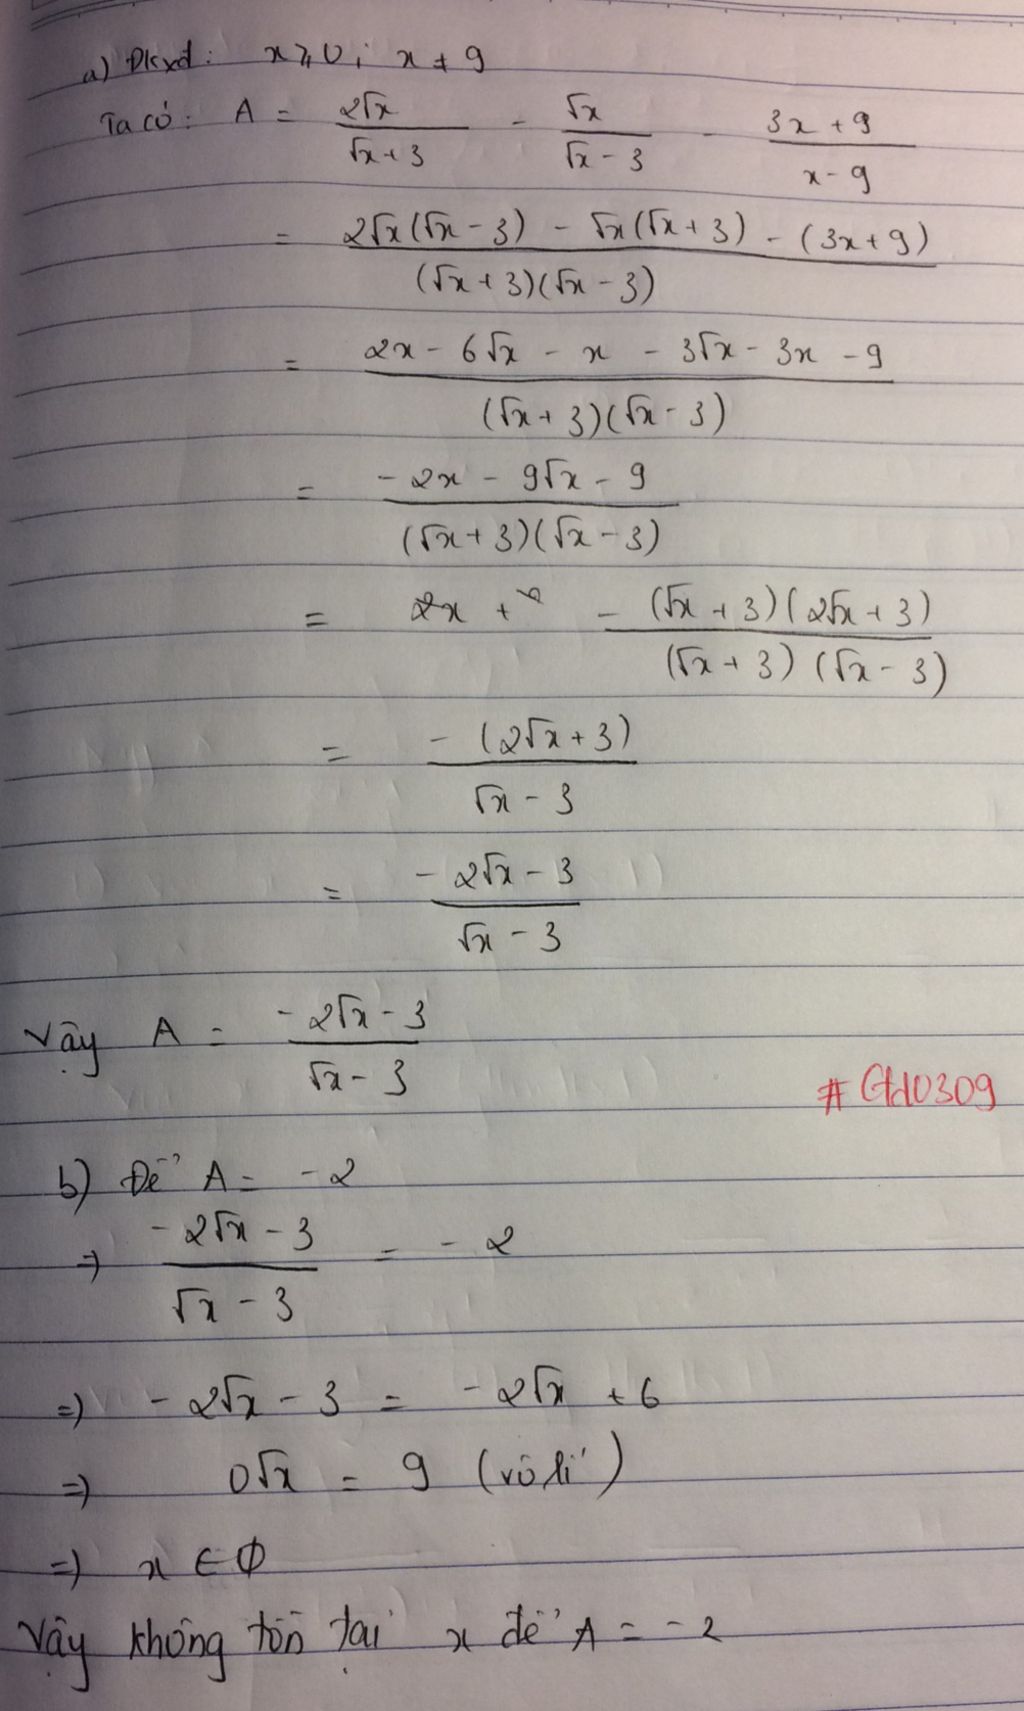 a) Đkxđ: x ⩾ 0; x ≠ 9
Ta có: A = 2√x / (√x + 3) - √x / (√x - 3) - (3x + 9) / (x - 9)
= (2√x(√x - 3) - √x(√x + 3) - (3x + 9)) / ((√x + 3)(√x - 3))
= (2x - 6√x - x - 3√x - 3x - 9) / ((√x + 3)(√x - 3))
= (-2x - 9√x - 9) / ((√x + 3)(√x - 3))
= -(√x + 3)(2√x + 3) / ((√x + 3)(√x - 3))
= -(2√x + 3) / (√x - 3)
= (-2√x - 3) / (√x - 3)
Vậy A = (-2√x - 3) / (√x - 3)
b) Để A = -2
=> (-2√x - 3) / (√x - 3) = -2
=> -2√x - 3 = -2√x + 6
=> 0√x = 9 (vô lí)
=> x ∈ Ø
Vậy không tồn tại x để A = -2